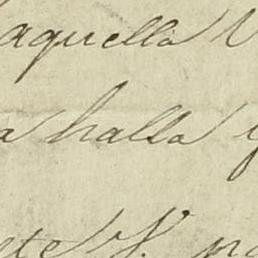 aquella
a halla
ete S.